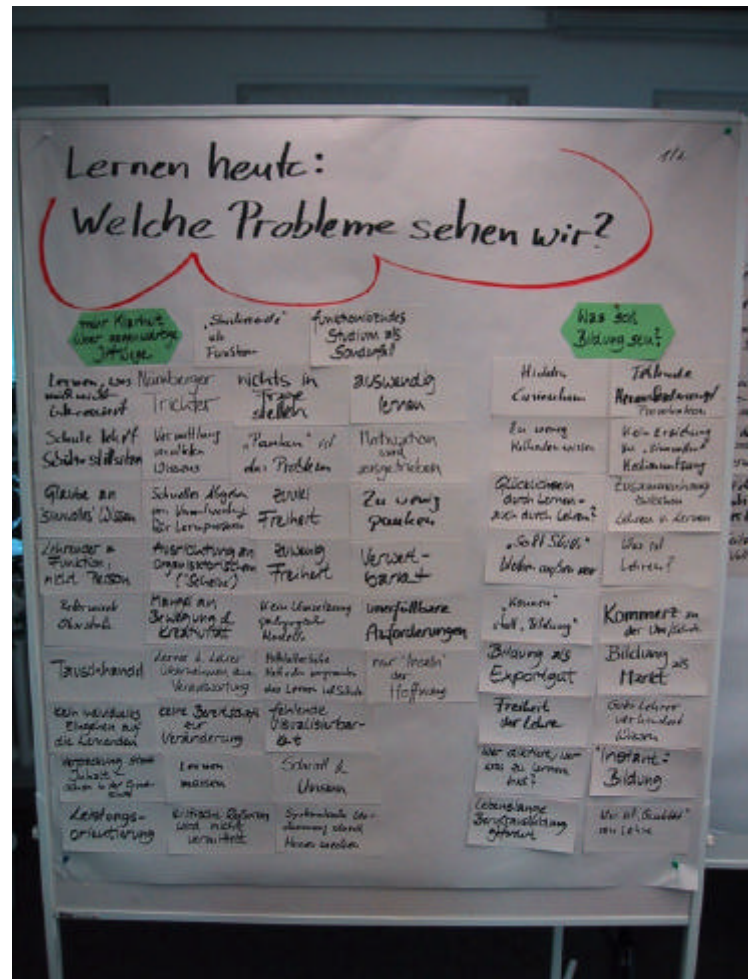 Lernen heute:
1/2
Welche Probleme sehen wir?
mehr Klarheit
über
"Studierende"
als
Funktion
funktionierendes
Studium als
Sonderfall
Was soll
Bildung sein?
Lernen, was
interessiert
Nürnberger
Trichter
nichts in
Frage
stellen
auswendig
lernen
Hidden
Curriculum
Fehlende
Schule lehrt
Schüler stillsitzen
Vermittlung
Wissens
"Pauken" ist
das Problem
Motivation
wird
ausgetrieben
Zu wenig
Kein Erziehung
Mediennutzung
Glaube an
'sinnvolles' Wissen
Schnelles
von Verantwortung
für Lernprozesse
zuviel
Freiheit
Zu wenig
pauken
Glücklichsein
durch Lernen -
auch durch Lehren?
Zusammenhang
zwischen
Lehren u. Lernen
Lehrender =
Funktion,
nicht Person
Ausrichtung an
Organisatorischem
('Scheine')
zuwenig
Freiheit
Verwert-
barkeit
"Soft Skills"
bleiben außen vor
Was ist
Lehren?
Mangel an
Bewegung &
Kreativität
Kein Umsetzung
pädagogischer
Modelle
unerfüllbare
Anforderungen
"Können"
statt "Bildung"
Kommerz an
der Uni/Schule
Tauschhandel
Lerner & Lehrer
übernehmen
Verantwortung
Mittelalterliche
Methoden
des Lernens
nur 'Inseln'
der
Hoffnung
Bildung als
Exportgut
Bildung als
Markt
kein individuelles
Eingehen auf
die Lernenden
keine Bereitschaft
zur
Veränderung
fehlende
Visualisierbar-
keit
Freiheit
der Lehre
Gute Lehrer
verhindert
Wissen
Verpackung statt
Inhalt
schon in der
Lernen
müssen
Schrott &
Unsinn
Wer diktiert, wer
was zu lernen
hat?
"Instant"-
Bildung
Leistungs-
orientierung
kritische Reflexion
wird nicht
vermittelt
Lebenslange
Berufsausbildung
gefordert
Was ist "Qualität"
von Lehre